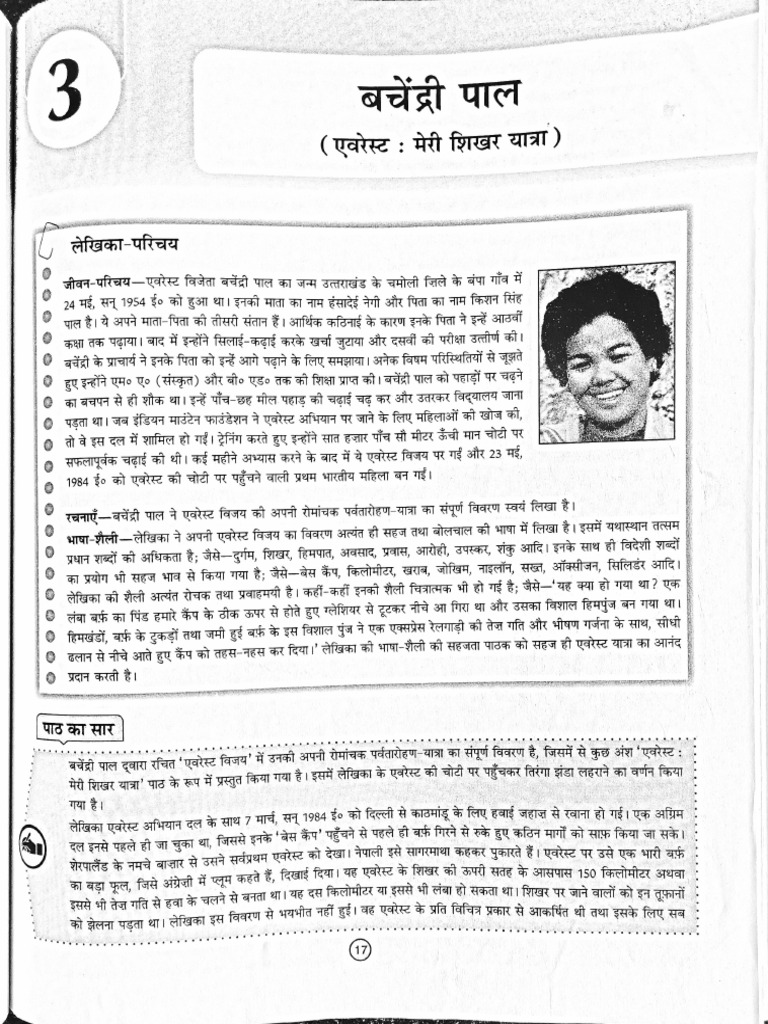 3
बचेंद्री पाल
( एवरेस्ट : मेरी शिखर यात्रा )
लेखिका-परिचय
जीवन-परिचय—एवरेस्ट विजेता बचेंद्री पाल का जन्म उत्तराखंड के चमोली ज़िले के बंपा गाँव में
24 मई, सन् 1954 ई० को हुआ था। इनकी माता का नाम हंसादेई नेगी और पिता का नाम किशन सिंह
पाल है। ये अपने माता-पिता की तीसरी संतान हैं। आर्थिक कठिनाई के कारण इनके पिता ने इन्हें आठवीं
कक्षा तक पढ़ाया। बाद में इन्होंने सिलाई-कढ़ाई करके खर्चा जुटाया और दसवीं की परीक्षा उत्तीर्ण की।
बचेंद्री के प्राचार्य ने इनके पिता को इन्हें आगे पढ़ाने के लिए समझाया। अनेक विषम परिस्थितियों से जूझते
हुए इन्होंने एम० ए० (संस्कृत) और बी० एड० तक की शिक्षा प्राप्त की। बचेंद्री पाल को पहाड़ों पर चढ़ने
का बचपन से ही शौक था। इन्हें पाँच-छह मील पहाड़ की चढ़ाई चढ़ कर और उतरकर विद्यालय जाना
पड़ता था। जब इंडियन माउंटेन फाउंडेशन ने एवरेस्ट अभियान पर जाने के लिए महिलाओं की खोज की,
तो वे इस दल में शामिल हो गईं। ट्रेनिंग करते हुए इन्होंने सात हज़ार पाँच सौ मीटर ऊँची मान चोटी पर
सफलापूर्वक चढ़ाई की थी। कई महीने अभ्यास करने के बाद में ये एवरेस्ट विजय पर गईं और 23 मई,
1984 ई० को एवरेस्ट की चोटी पर पहुँचने वाली प्रथम भारतीय महिला बन गईं।
रचनाएँ—बचेंद्री पाल ने एवरेस्ट विजय की अपनी रोमांचक पर्वतारोहण-यात्रा का संपूर्ण विवरण स्वयं लिखा है।
भाषा-शैली—लेखिका ने अपनी एवरेस्ट विजय का विवरण अत्यंत ही सहज तथा बोलचाल की भाषा में लिखा है। इसमें यथास्थान तत्सम
प्रधान शब्दों की अधिकता है; जैसे—दुर्गम, शिखर, हिमपात, अवसाद, प्रवास, आरोही, उपस्कर, शंकु आदि। इनके साथ ही विदेशी शब्दों
का प्रयोग भी सहज भाव से किया गया है; जैसे—बेस कैंप, किलोमीटर, खराब, जोखिम, नाइलॉन, सख्त, ऑक्सीजन, सिलिंडर आदि।
लेखिका की शैली अत्यंत रोचक तथा प्रवाहमयी है। कहीं-कहीं इनकी शैली चित्रात्मक भी हो गई है; जैसे—'यह क्या हो गया था? एक
लंबा बर्फ़ का पिंड हमारे कैंप के ठीक ऊपर से होते हुए ग्लेशियर से टूटकर नीचे आ गिरा था और उसका विशाल हिमपुंज बन गया था।
हिमखंडों, बर्फ़ के टुकड़ों तथा जमी हुई बर्फ़ के इस विशाल पुंज ने एक एक्सप्रेस रेलगाड़ी की तेज़ गति और भीषण गर्जना के साथ, सीधी
ढलान से नीचे आते हुए कैंप को तहस-नहस कर दिया।' लेखिका की भाषा-शैली की सहजता पाठक को सहज ही एवरेस्ट यात्रा का आनंद
प्रदान करती है।
पाठ का सार
बचेंद्री पाल द्वारा रचित 'एवरेस्ट विजय' में उनकी अपनी रोमांचक पर्वतारोहण-यात्रा का संपूर्ण विवरण है, जिसमें से कुछ अंश 'एवरेस्ट :
मेरी शिखर यात्रा' पाठ के रूप में प्रस्तुत किया गया है। इसमें लेखिका के एवरेस्ट की चोटी पर पहुँचकर तिरंगा झंडा लहराने का वर्णन किया
गया है।
लेखिका एवरेस्ट अभियान दल के साथ 7 मार्च, सन् 1984 ई० को दिल्ली से काठमांडू के लिए हवाई जहाज़ से रवाना हो गई। एक अग्रिम
दल इनसे पहले ही जा चुका था, जिससे इनके 'बेस कैंप' पहुँचने से पहले ही बर्फ़ गिरने से रुके हुए कठिन मार्गों को साफ़ किया जा सके।
शेरपालैंड के नमचे बाज़ार से उसने सर्वप्रथम एवरेस्ट को देखा। नेपाली इसे सागरमाथा कहकर पुकारते हैं। एवरेस्ट पर उसे एक भारी बर्फ़
का बड़ा फूल, जिसे अंग्रेज़ी में प्लूम कहते हैं, दिखाई दिया। यह एवरेस्ट के शिखर की ऊपरी सतह के आसपास 150 किलोमीटर अथवा
इससे भी तेज़ गति से हवा के चलने से बनता था। यह दस किलोमीटर या इससे भी लंबा हो सकता था। शिखर पर जाने वालों को इन तूफ़ानों
को झेलना पड़ता था। लेखिका इस विवरण से भयभीत नहीं हुई। वह एवरेस्ट के प्रति विचित्र प्रकार से आकर्षित थी तथा इसके लिए सब
17